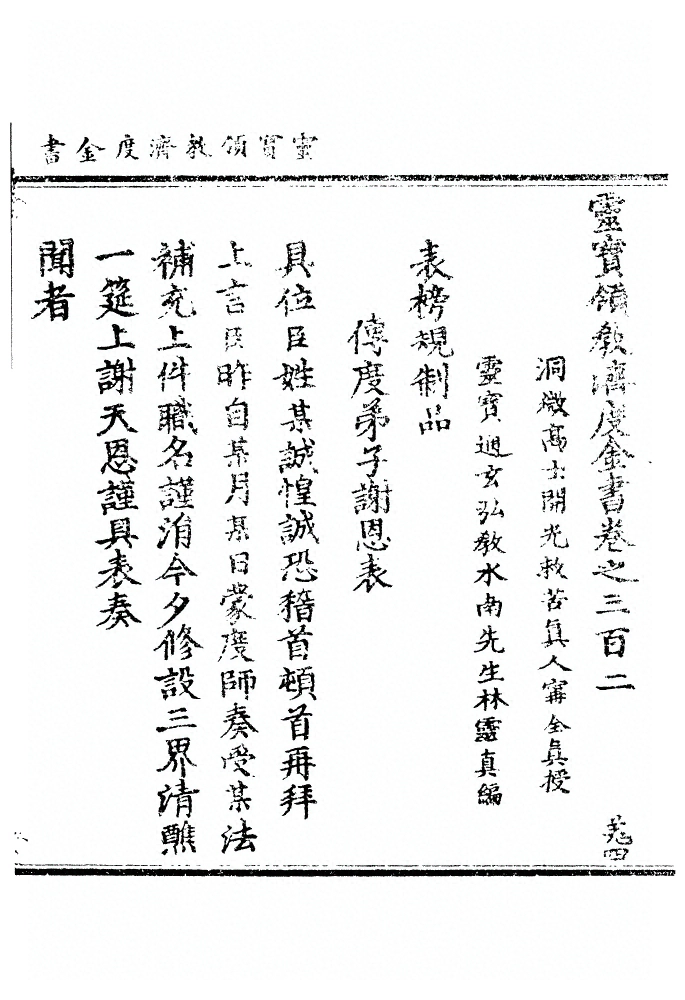 靈寶領教濟度金書
靈寶領教濟度金書卷之三百二
羌四
洞微高士開光救苦眞人甯全眞授
靈寶通玄弘教水南先生林靈真編
表榜規制品
傳度弟子謝恩表
具位臣姓某誠惶誠恐稽首頓首再拜
上言臣昨自某月某日蒙度師奏受某法
補充上件職名謹涓今夕修設三界清醮
一筵上謝天恩謹具表奏
聞者